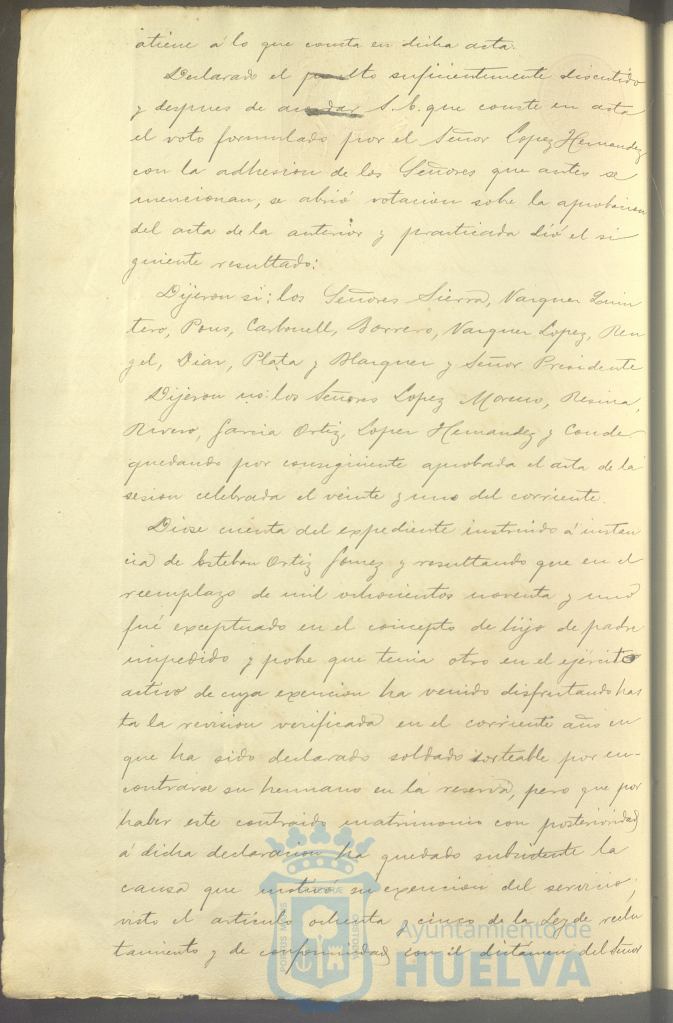 atiene á lo que consta en dicha acta.
Declarado el pto suficientemente discutido
y despues de acordar S.E. que conste en acta
el voto formulado por el Señor Lopez Hernandez
con la adhesion de los Señores que antes se
mencionan, se abrió votacion sobre la aprobacion
del acta de la anterior y practicada dió el si
guiente resultado:
Dijeron si: los Señores Sierra, Vazquez Quin
tero, Pons, Carbonell, Borrero, Vazquez Lopez, Ren
gel, Diaz, Plata y Blazquez y Señor Presidente
Dijeron no: los Señores Lopez Moreno, Resina,
Rivero, Garcia Ortiz, Lopez Hernandez y Conde
quedando por consiguiente aprobada el acta de la
sesion celebrada el veinte y uno del corriente.
Diose cuenta del expediente instruido á instan
cia de Esteban Ortiz Gomez y resultando que en el
reemplazo de mil ochocientos noventa y uno
fué exceptuado en el concepto de hijo de padre
impedido y pobre que tenia otro en el ejército
activo de cuya exencion ha venido disfrutando has
ta la revision verificada en el corriente año en
que ha sido declarado soldado sorteable por en-
contrarse su hermano en la reserva, pero que por
haber este contraido matrimonio con posterioridad
á dicha declaracion ha quedado subsistente la
causa que motivó su exencion del servicio;
visto el artículo ochenta y cinco de la Ley de reclu
tamiento y de conformidad con el dictamen del Señor
Ayuntamiento de
HUELVA